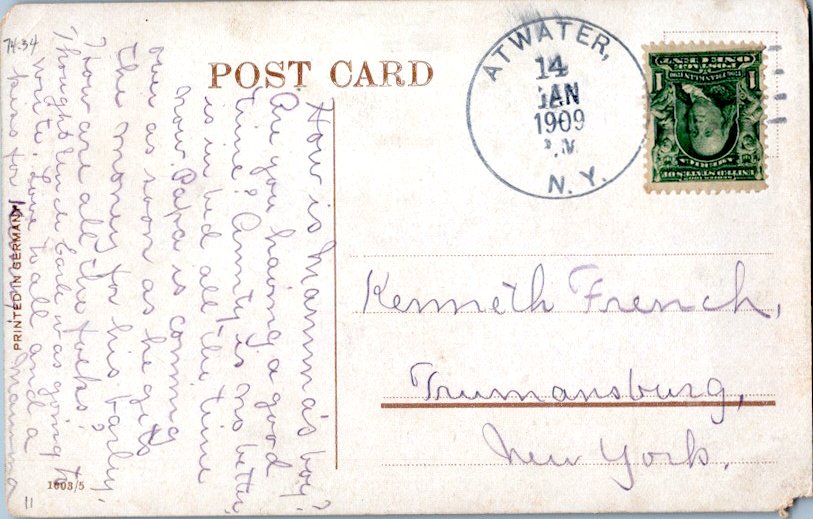 74-34
POST CARD
ATWATER,
14
JAN
1909
N. Y.
ONE CENT
1 1
AMERICA
UNITED STATES OF
How is Mamma's boy?
Are you having a good
time? Aunty is no better,
is in bed all the time
now. Papa is coming
over as soon as he gets
the money for his barley.
How are all the folks?
Thought Uncle Earl was going to
write. Love to all and a
kiss for Mamma
Kenneth French,
Trumansburg,
New York.
PRINTED IN GERMANY
1603/5
11